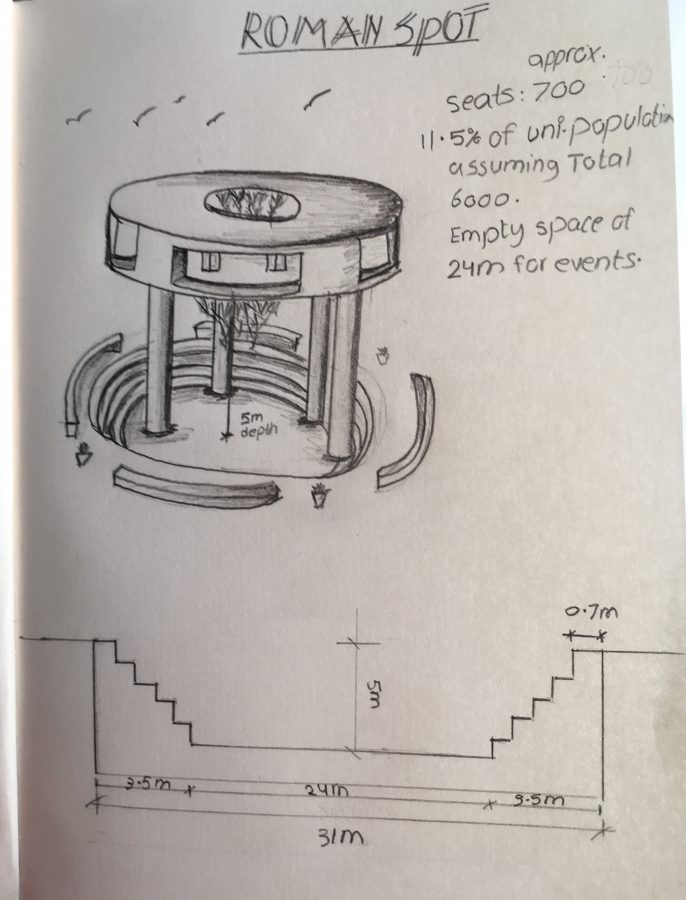 ROMAN SPOT
approx.
seats: 700
11.5% of uni. population
assuming Total
6000.
Empty space of
24m for events.
5m
depth
0.7m
5m
3.5m
24m
3.5m
31m